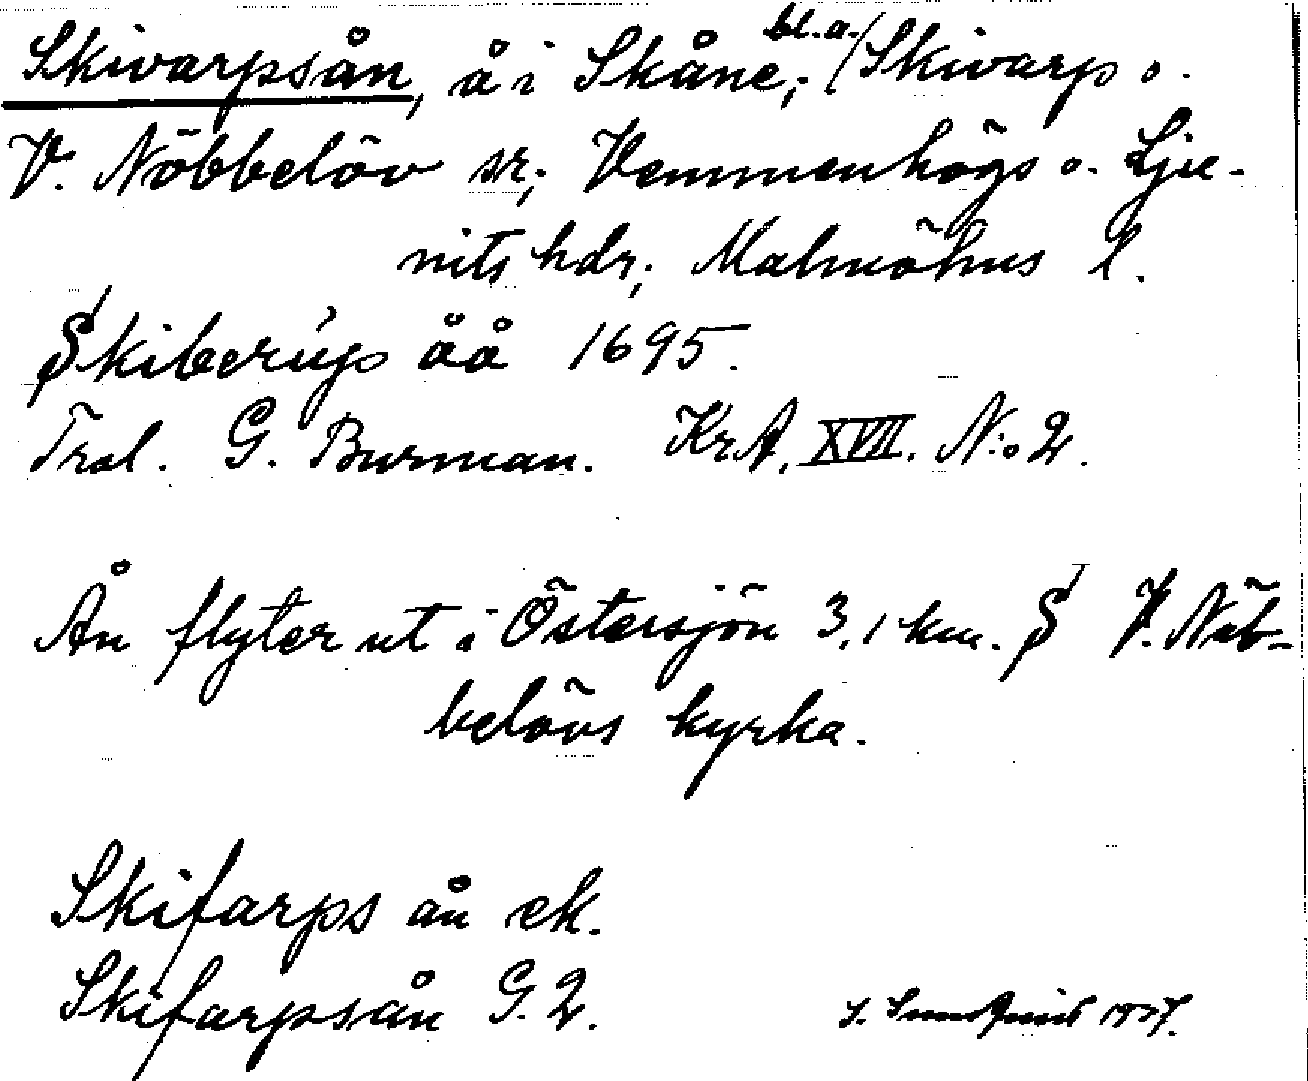 Skivarpsån, å i Skåne; bl.a. / Skivarp o.
V. Nöbbelöv sr; Vemmenhögs o. Lju-
nits hdr; Malmöhus l.
Skiberups åå 1695.
Tral. G. Burman. KrA. XVII. N:o 2.
Ån flyter ut i Östersjön 3,1 km. S V. Nöb-
belövs kyrka.
Skifarps ån ek.
Skifarpsån G.2.